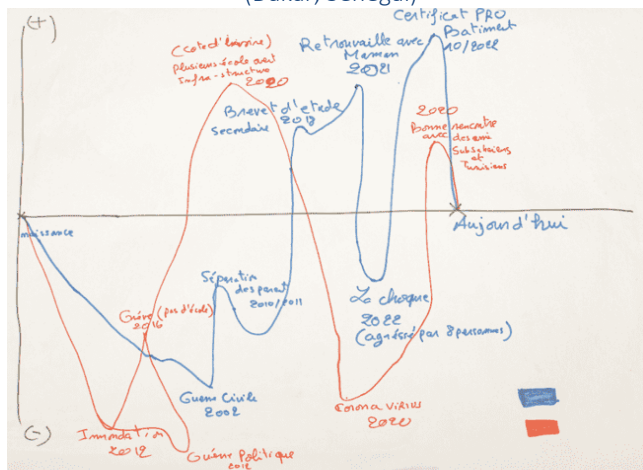 (Dakar, Sénégal)
(+)
(Cote d'Ivoire)
Plusieurs école avec
Infra-structure
2020
Retrouvaille avec
Maman
2021
Certificat PRO
Batiment
10/2022
Brevet d'etude
secondaire
2018
2020
Bonne rencontre
avec des ami
Subsahariens
et
Tunisiens
naissance
Aujourd'hui
Séparation
des parent
2010/2011
Grève (pas d'école)
2016
Le choque
2022
(agréssé par 8 personnes)
Guerre Civile
2002
Corona Virius
2020
Innondation
2012
Guerre Politique
2012
(-)